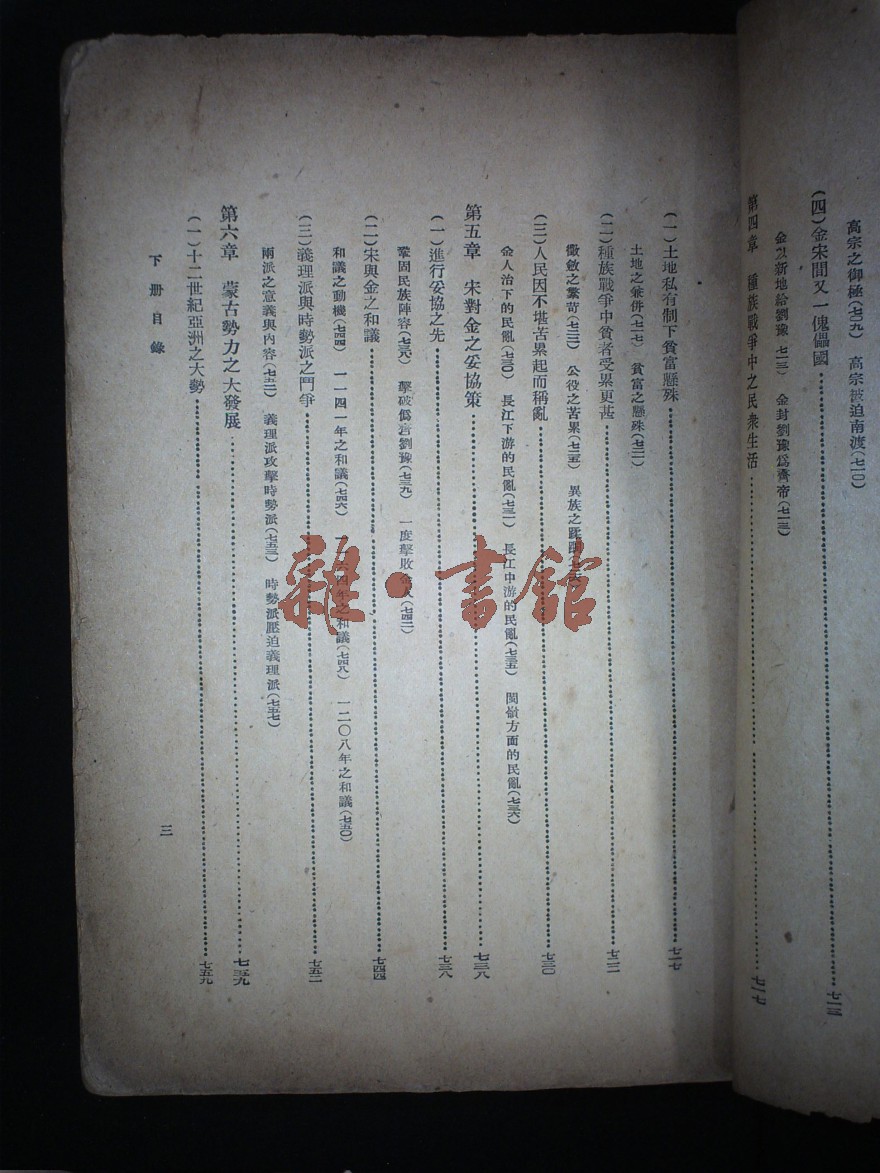 高宗之御極(七〇九) 高宗被迫南渡(七一〇)
(四)金宋間又一傀儡國 七一三
金以新地給劉豫(七一三) 金封劉豫爲齊帝(七一三)
第四章 種族戰爭中之民衆生活 七一七
(一)土地私有制下貧富懸殊 七一七
土地之兼併(七一七) 貧富之懸殊(七二一)
(二)種族戰爭中貧者受累更甚 七二二
徵斂之繁苛(七二二) 公役之苦累(七二五) 異族之蹂躪
(三)人民因不堪苦累起而稱亂 七三〇
金人治下的民亂(七三〇) 長江下游的民亂(七三一) 長江中游的民亂(七三五) 閩嶺方面的民亂(七三六)
第五章 宋對金之妥協策 七三八
(一)進行妥協之先 七三八
鞏固民族陣容(七三八) 擊破僞齊劉豫(七三九) 一度擊敗金人(七四二)
(二)宋與金之和議 七四四
和議之動機(七四四) 一一四一年之和議(七四六) 一一六四年之和議(七四八) 一二〇八年之和議(七五〇)
(三)義理派與時勢派之鬥爭 七五二
兩派之意義與內容(七五二) 義理派攻擊時勢派(七五三) 時勢派壓迫義理派(七五七)
第六章 蒙古勢力之大發展 七五九
(一)十二世紀亞洲之大勢 七五九
下册目錄
三
雜·書館